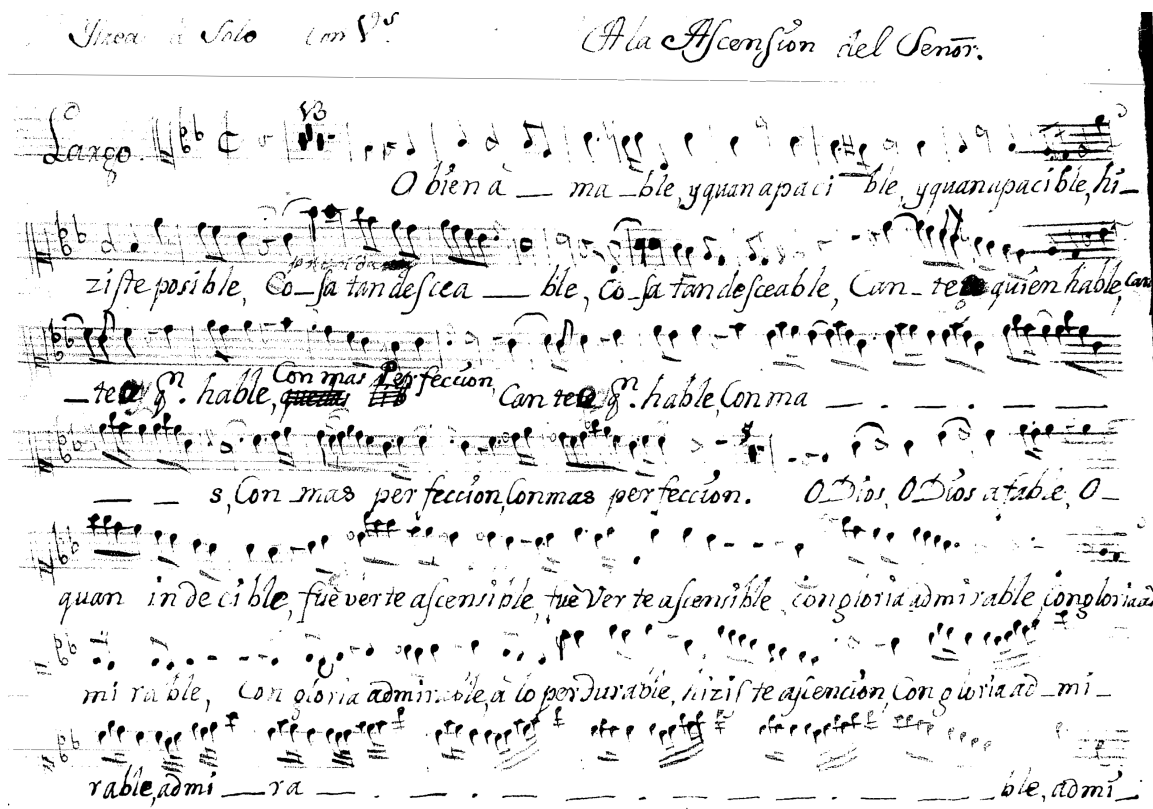 à Solo con Vs. A la Ascension del Señor.
Largo. V3
O bien à — ma — ble, y quan apaci — ble, y quan apacible, hi —
ziste posible, Co — sa tan desea — ble, co — sa tan deseable, Can — te quien hable, Can
— te qn. hable, Con mas Perfeccion Can te qn. hable, Con ma — . — . — . —
— — s, Con mas perfeccion, Con mas perfeccion. O Dios, O Dios afable, O —
quan indecible, fuè verte ascensible, fuè Verte ascensible con gloria admirable con gloria ad
mirable, Con gloria admirable, à lo perdurable, hiziste ascencion, Con gloria ad — mi —
rable, admi — ra — . — . — . — . — ble, admi — .